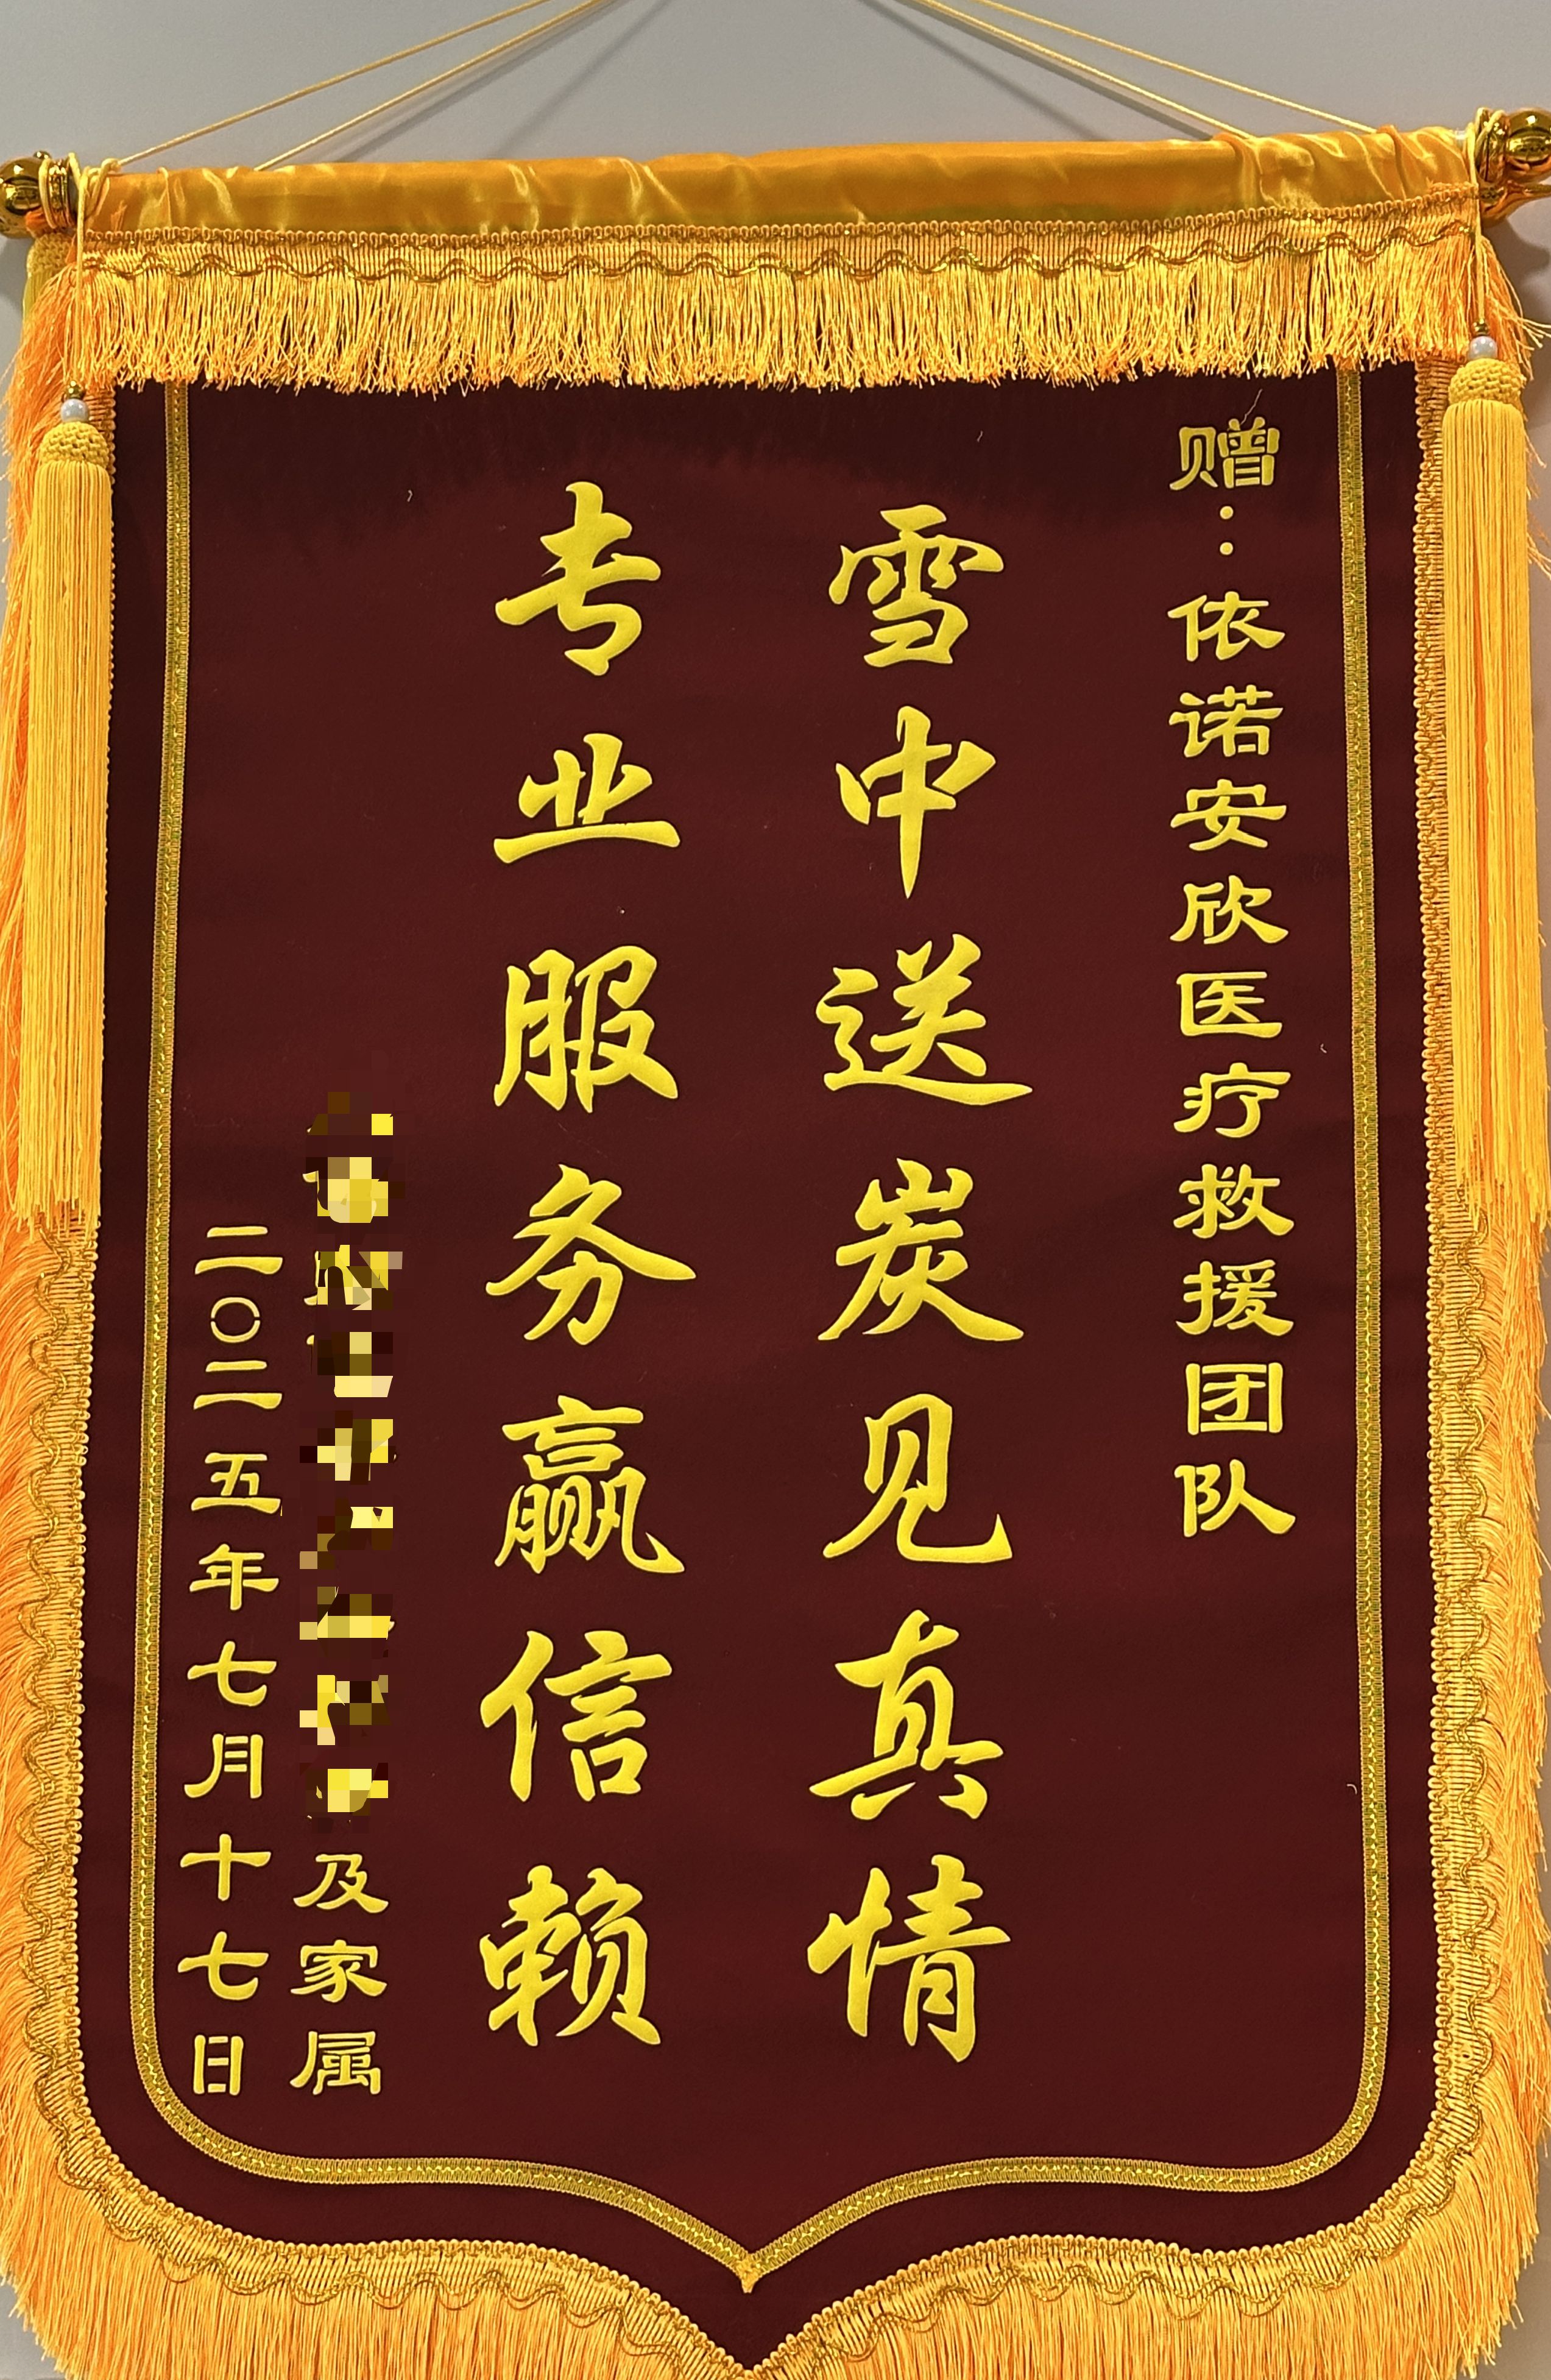 赠：依诺安欣医疗救援团队
雪中送炭见真情
专业服务赢信赖
及家属
二〇二五年七月十七日